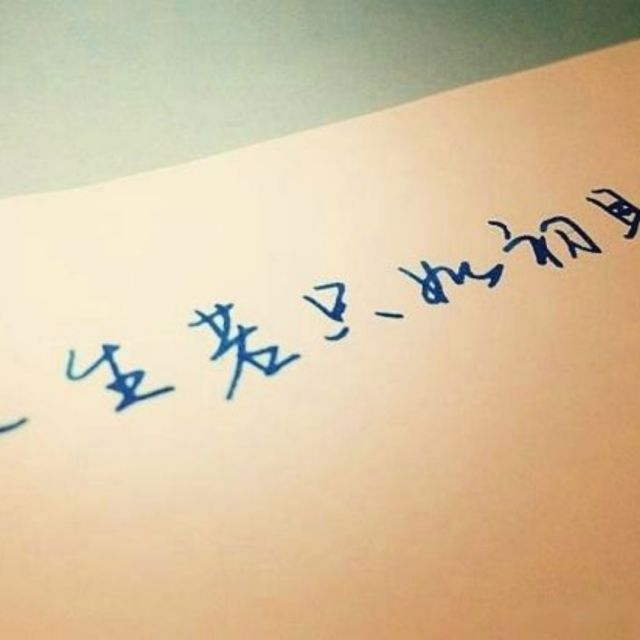 生若只如初见